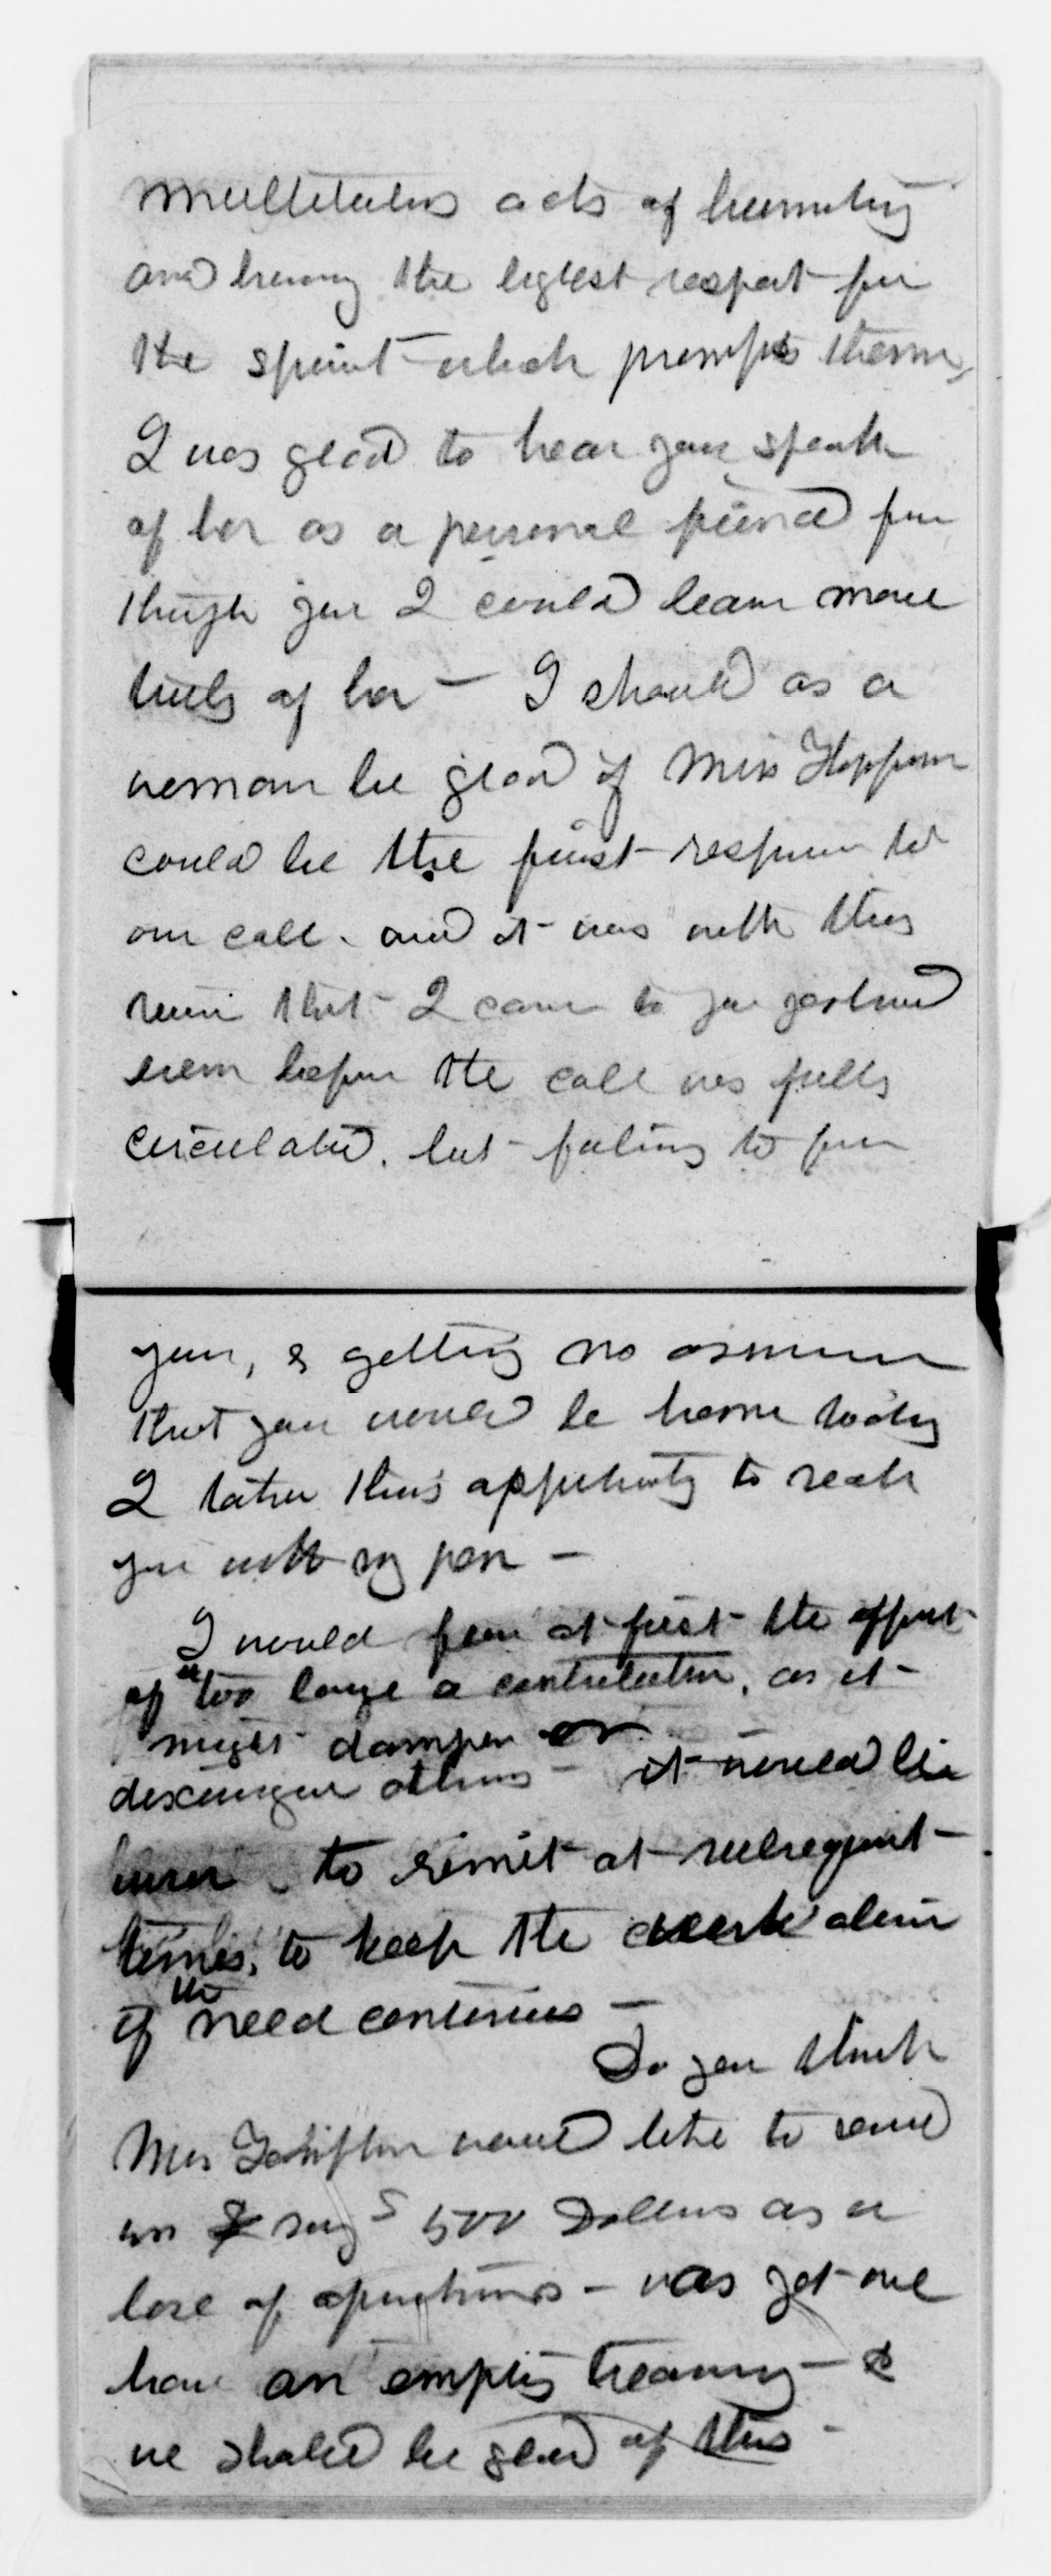 multitudes acts of humanity
and having the highest respect for
the spirit which prompts them,
I was glad to hear you speak
of her as a personal friend for
through you I could learn more
truly of her — I should as a
woman be glad if Miss
could be the first response to
our call. and it was with this
view that I came to you yesterday
even before the call was fully
circulated. but failing to find
you, & getting no assurance
that you would be home today
I take this opportunity to reach
you with my pen —
I would fear at first the effect
of too large a contribution, as it
might dampen or
discourage others — it would be
to remit at subsequent
times, to keep the work alive
if the need continues —
Do you think
would like to send
us say 500 Dollars as a
base of operations — as yet we
have an empty treasury — &
we should be glad of this —